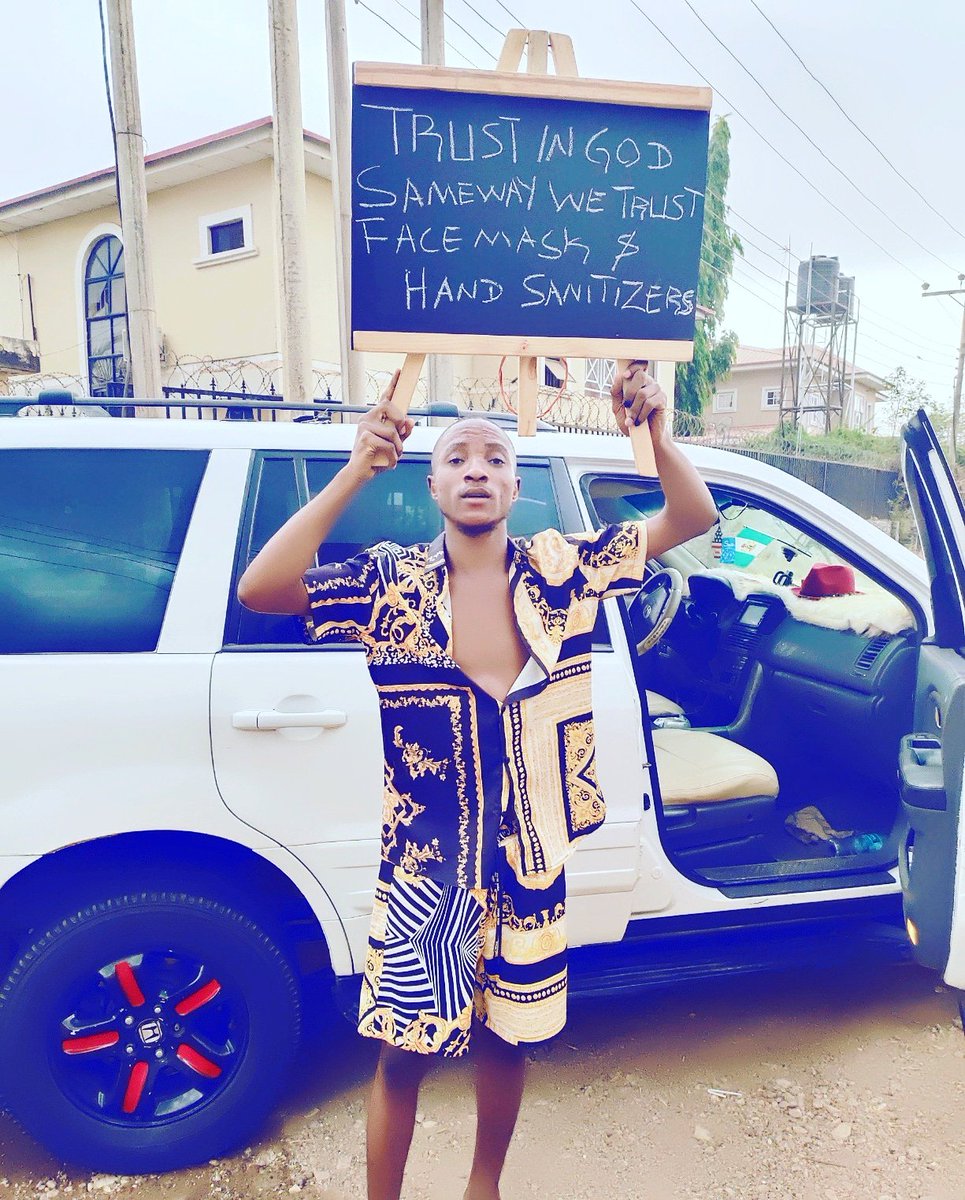 TRUST IN GOD
SAMEWAY WE TRUST
FACE MASK $
HAND SANITIZERS